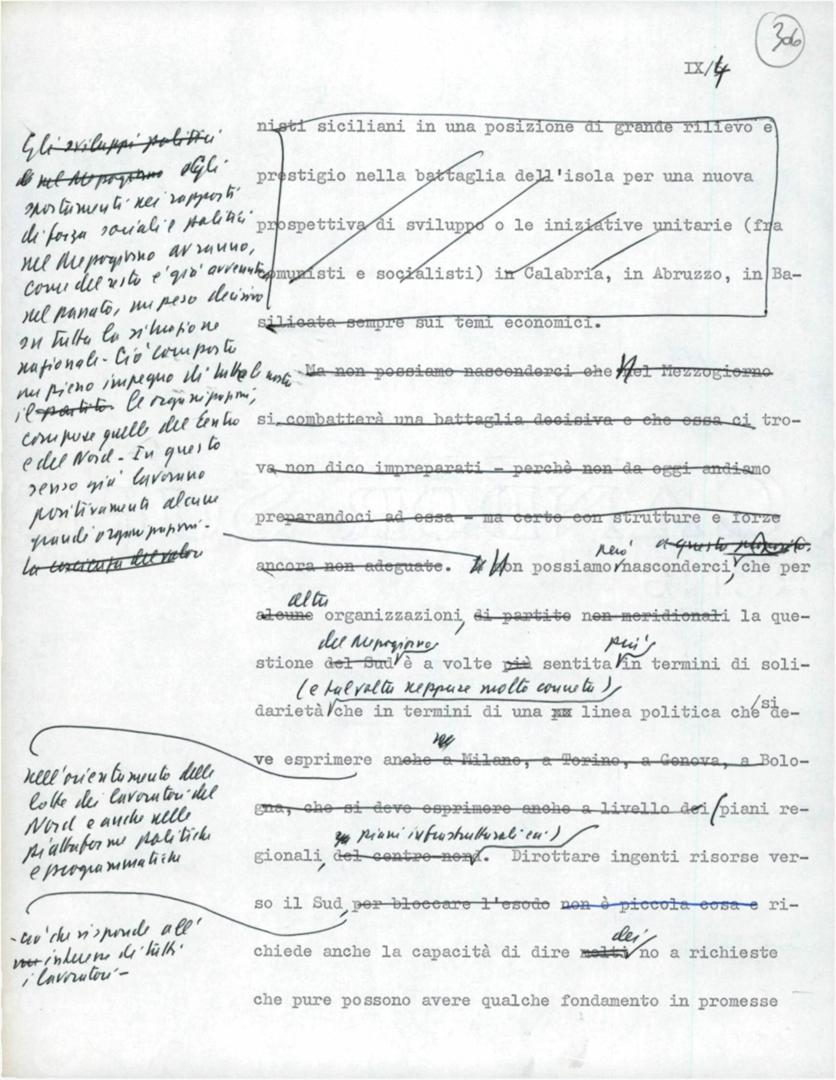 306
IX/4
Gli sviluppi politici
nel Mezzogiorno Gli
spostamenti nei rapporti
di forza sociali e politici
nel Mezzogiorno avranno,
come del resto è già avvenuto
nel passato, un peso decisivo
su tutta la situazione
nazionale - Ciò comporta
un pieno impegno di tutto il nostro
il partito. le organizzazioni,
comprese quelle del Centro
e del Nord - In questo
senso già lavorano
positivamente alcune
grandi organizzazioni -
la coscienza del valore
nisti siciliani in una posizione di grande rilievo e
prestigio nella battaglia dell'isola per una nuova
prospettiva di sviluppo o le iniziative unitarie (fra
comunisti e socialisti) in Calabria, in Abruzzo, in Ba-
silicata sempre sui temi economici.
Ma non possiamo nasconderci che Nel Mezzogiorno
si combatterà una battaglia decisiva e che essa ci tro-
va non dico impreparati - perchè non da oggi andiamo
preparandoci ad essa - ma certo con strutture e forze
però a questo proposito,
ancora non adeguate. Non possiamo nasconderci, che per
altre
alcune organizzazioni, di partito non meridionali la que-
del Mezzogiorno più
stione del Sud è a volte più sentita in termini di soli-
(e talvolta neppure molto concreta)
darietà che in termini di una xx linea politica che si de-
ve esprimere anche a Milano, a Torino, a Genova, a Bolo-
nell'orientamento delle
lotte dei lavoratori del
Nord e anche nelle
piattaforme politiche
e programmatiche
gna, che si deve esprimere anche a livello dei (piani re-
piani infrastrutturali ecc.)
gionali, del centro-nord. Dirottare ingenti risorse ver-
so il Sud, per bloccare l'esodo non è piccola cosa e ri-
- ciò che risponde all'
interesse di tutti
i lavoratori -
dei
chiede anche la capacità di dire molti no a richieste
che pure possono avere qualche fondamento in promesse